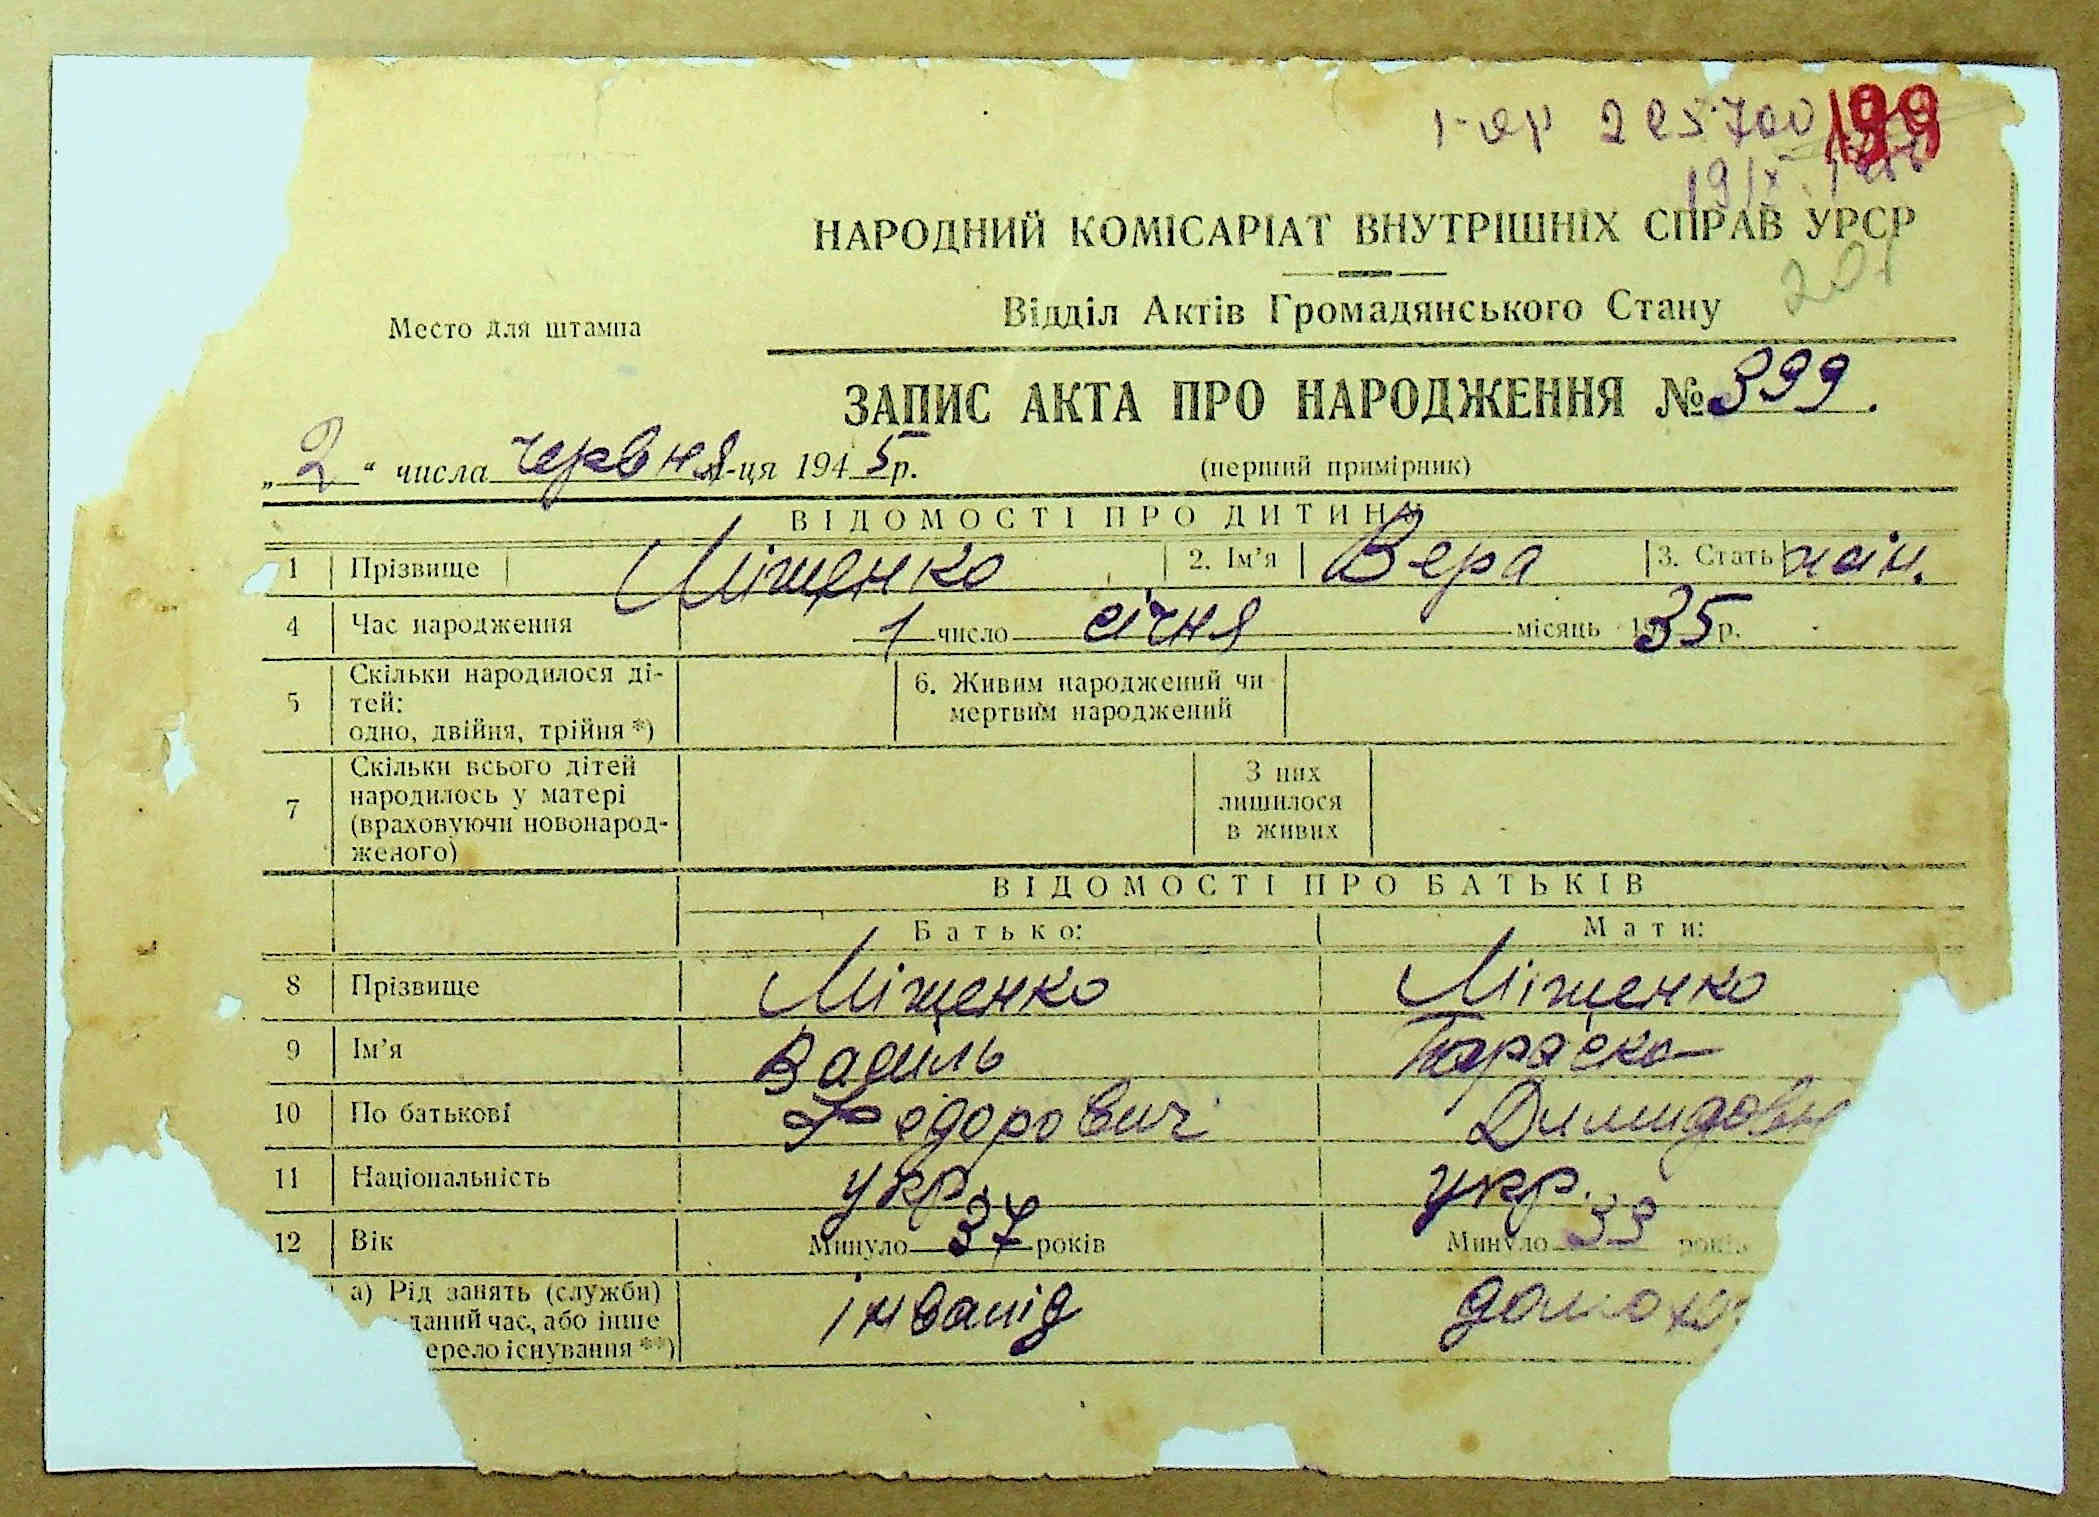 199
НАРОДНИЙ КОМІСАРІАТ ВНУТРІШНІХ СПРАВ УРСР
Место для штампа
Відділ Актів Громадянського Стану
ЗАПИС АКТА ПРО НАРОДЖЕННЯ № 399.
„2“ числа червня м-ця 1945 р. (перший примірник)
ВІДОМОСТІ ПРО ДИТИНУ
1 Прізвище Міщенко 2. Ім'я Вера 3. Стать жін.
4 Час народження 1 число січня місяць 1935 р.
5 Скільки народилося ді-
тей:
одно, двійня, трійня *)
6. Живим народжений чи
мертвим народжений
7 Скільки всього дітей
народилось у матері
(враховуючи новонарод-
женого)
З них
лишилося
в живих
ВІДОМОСТІ ПРО БАТЬКІВ
Батько: Мати:
8 Прізвище Міщенко Міщенко
9 Ім'я Василь Параска
10 По батькові Федорович Димидовн
11 Національність укр. укр.
12 Вік Минуло 37 років Минуло 33 років
а) Рід занять (служби) інвалід домохо
даний час, або інше
ерело існування **)